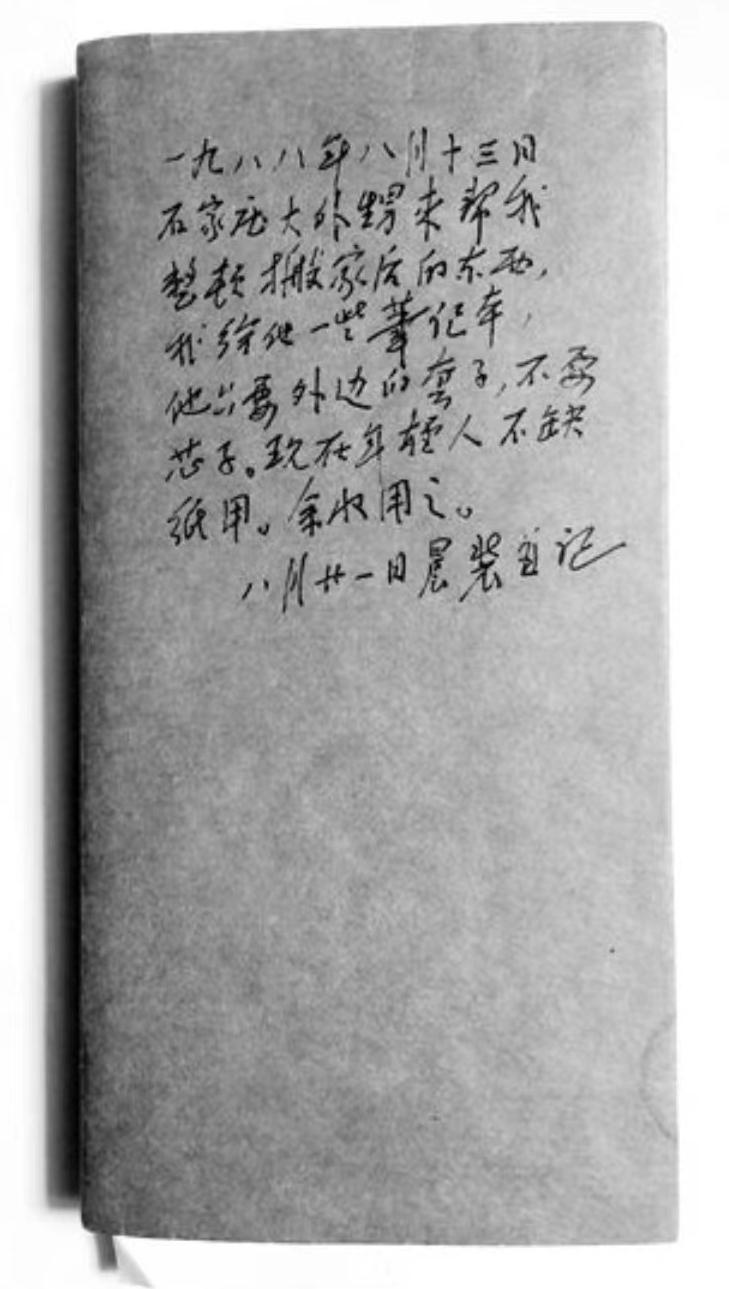 一九八八年八月十三日
石家庄大外甥来帮我
整顿搬家后的东西，
我给他一些筆记本，
他只要外边的套子，不要
芯子。现在年轻人不缺
纸用。余收用之。
八月廿一日晨装並记